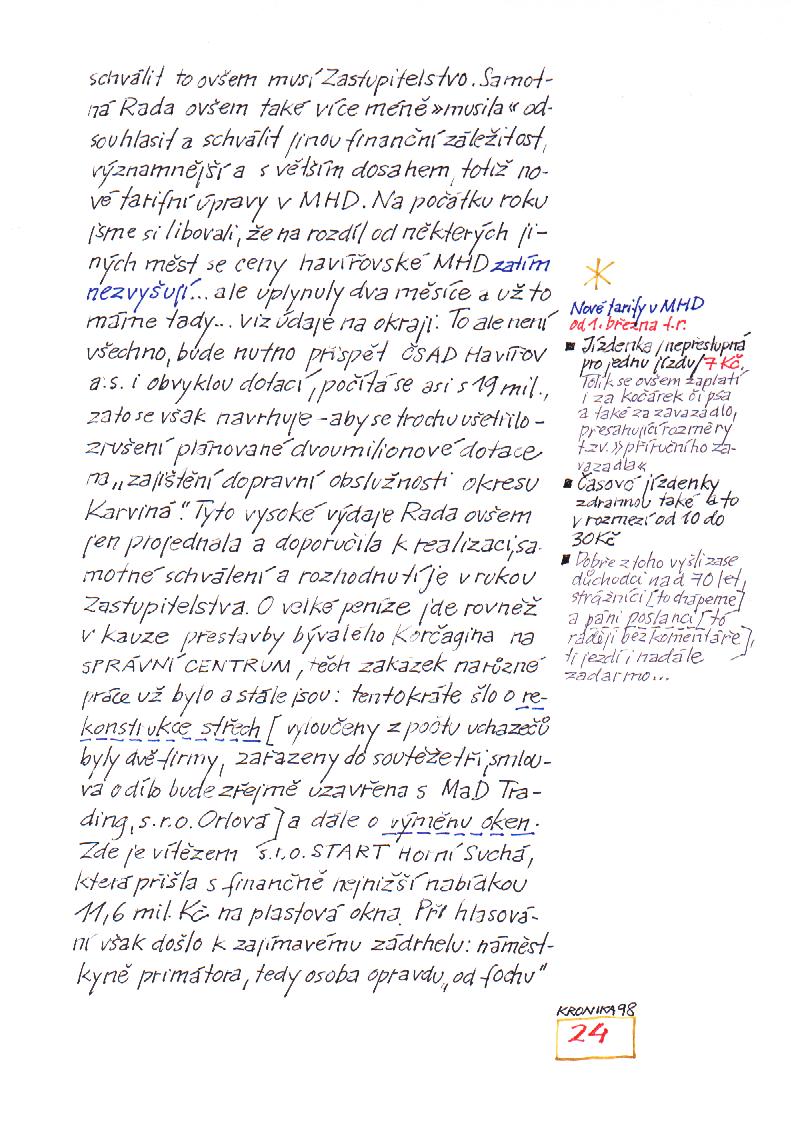 schválit to ovšem musí Zastupitelstvo. Samot-
ná Rada ovšem také více méně »musila« od-
souhlasit a schválit jinou finanční záležitost,
významnější a s větším dosahem, totiž no-
vé tarifní úpravy v MHD. Na počátku roku
jsme si libovali, že na rozdíl od některých ji-
ných měst se ceny havířovské MHD zatím
nezvyšují... ale uplynuly dva měsíce a už to
máme tady... viz údaje na okraji. To ale není
všechno, bude nutno přispět ČSAD Havířov
a.s. i obvyklou dotací, počítá se asi s 19 mil.,
zato se však navrhuje - aby se trochu ušetřilo -
zrušení plánované dvoumilionové dotace
na „zajištění dopravní obslužnosti okresu
Karviná." Tyto vysoké výdaje Rada ovšem
jen projednala a doporučila k realizaci, sa-
motné schválení a rozhodnutí je v rukou
Zastupitelstva. O velké peníze jde rovněž
v kauze přestavby bývalého Korčagina na
SPRÁVNÍ CENTRUM, těch zakázek na různé
práce už bylo a stále jsou: tentokráte šlo o re-
konstrukce střech [vyloučeny z počtu uchazečů
byly dvě firmy, zařazeny do soutěže tři, smlou-
va o dílo bude zřejmě uzavřena s MaD Tra-
ding, s.r.o. Orlová] a dále o výměnu oken.
Zde je vítězem s.r.o. START Horní Suchá,
která přišla s finančně nejnižší nabídkou
11,6 mil. Kč na plastová okna. Při hlasová-
ní však došlo k zajímavému zádrhelu: náměst-
kyně primátora, tedy osoba opravdu „od fochu"
Nové tarify v MHD
od 1. března t.r.
■ Jízdenka /nepřestupná
pro jednu jízdu/ 7 Kč.
Tolik se ovšem zaplatí
i za kočárek či psa
a také za zavazadlo,
přesahující rozměry
tzv. »příručního za-
vazadla«
■ Časové jízdenky
zdrahnou také a to
v rozmezí od 10 do
30 Kč
■ Dobře z toho vyšli zase
důchodci nad 70 let,
strážníci [to chápeme]
a páni poslanci [to
raději bez komentáře],
ti jezdí i nadále
zadarmo...
KRONIKA 98
24